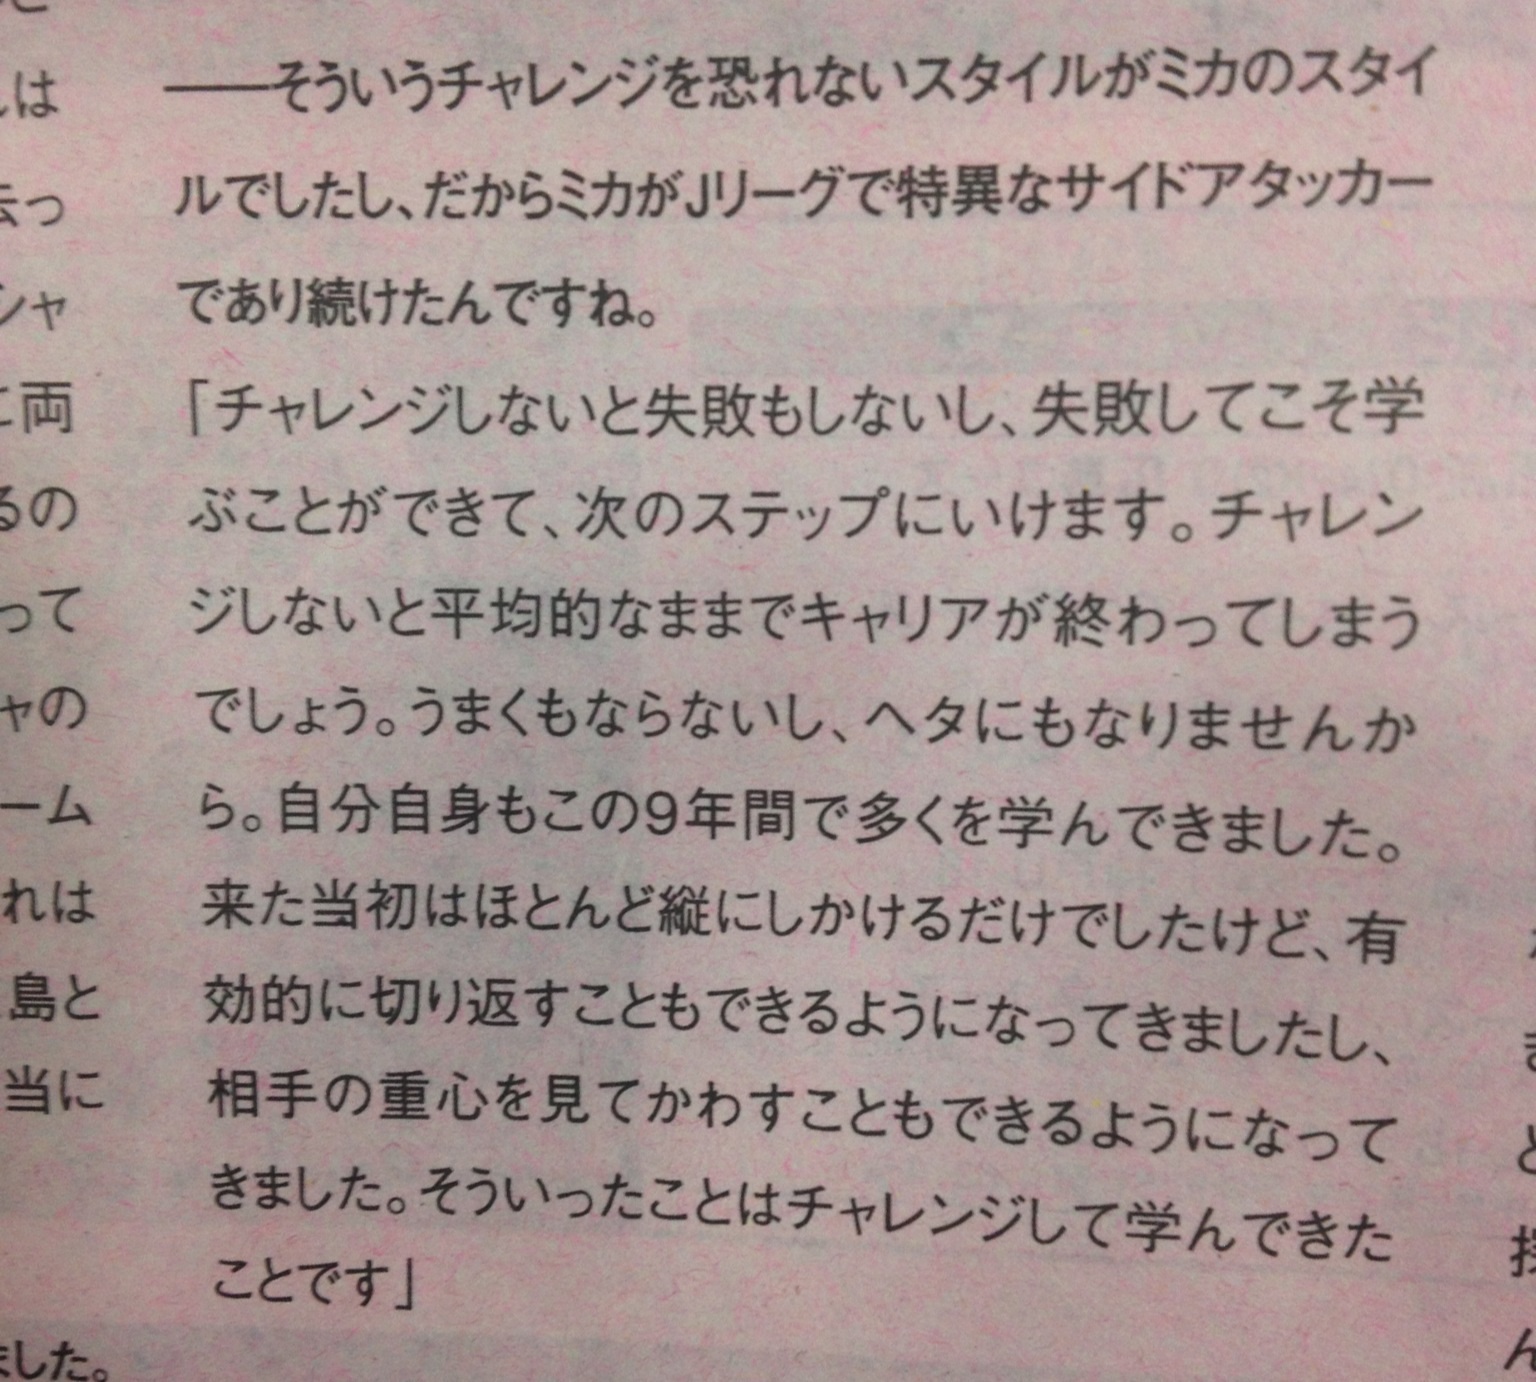 ——そういうチャレンジを恐れないスタイルがミカのスタイ
ルでしたし、だからミカがJリーグで特異なサイドアタッカー
であり続けたんですね。
「チャレンジしないと失敗もしないし、失敗してこそ学
ぶことができて、次のステップにいけます。チャレン
ジしないと平均的なままでキャリアが終わってしまう
でしょう。うまくもならないし、ヘタにもなりませんか
ら。自分自身もこの9年間で多くを学んできました。
来た当初はほとんど縦にしかけるだけでしたけど、有
効的に切り返すこともできるようになってきましたし、
相手の重心を見てかわすこともできるようになって
きました。そういったことはチャレンジして学んできた
ことです」
は
っ
シャ
両
るの
って
ャの
ーム
れは
島と
当に
ました。